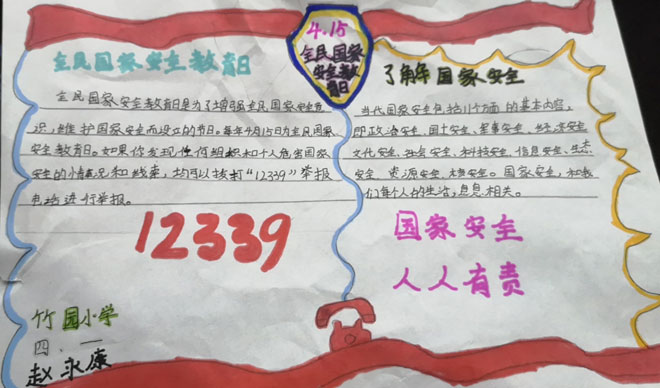 4.15
全民国家
安全教
育日
全民国家安全教育日
全民国家安全教育日是为了增强全民国家安全意
识,维护国家安全而设立的节日。每年4月15日为全民国家
安全教育日。如果你发现任何组织和个人危害国家
安全的情况和线索,均可以拨打“12339”举报
电话进行举报。
12339
竹园小学
四.一
赵永康
了解国家安全
当代国家安全包括11个方面的基本内容,
即政治安全、国土安全、军事安全、经济安全
文化安全、社会安全、科技安全、信息安全、生态
安全、资源安全、核安全。国家安全,和我
们每个人的生活,息息相关。
国家安全
人人有责